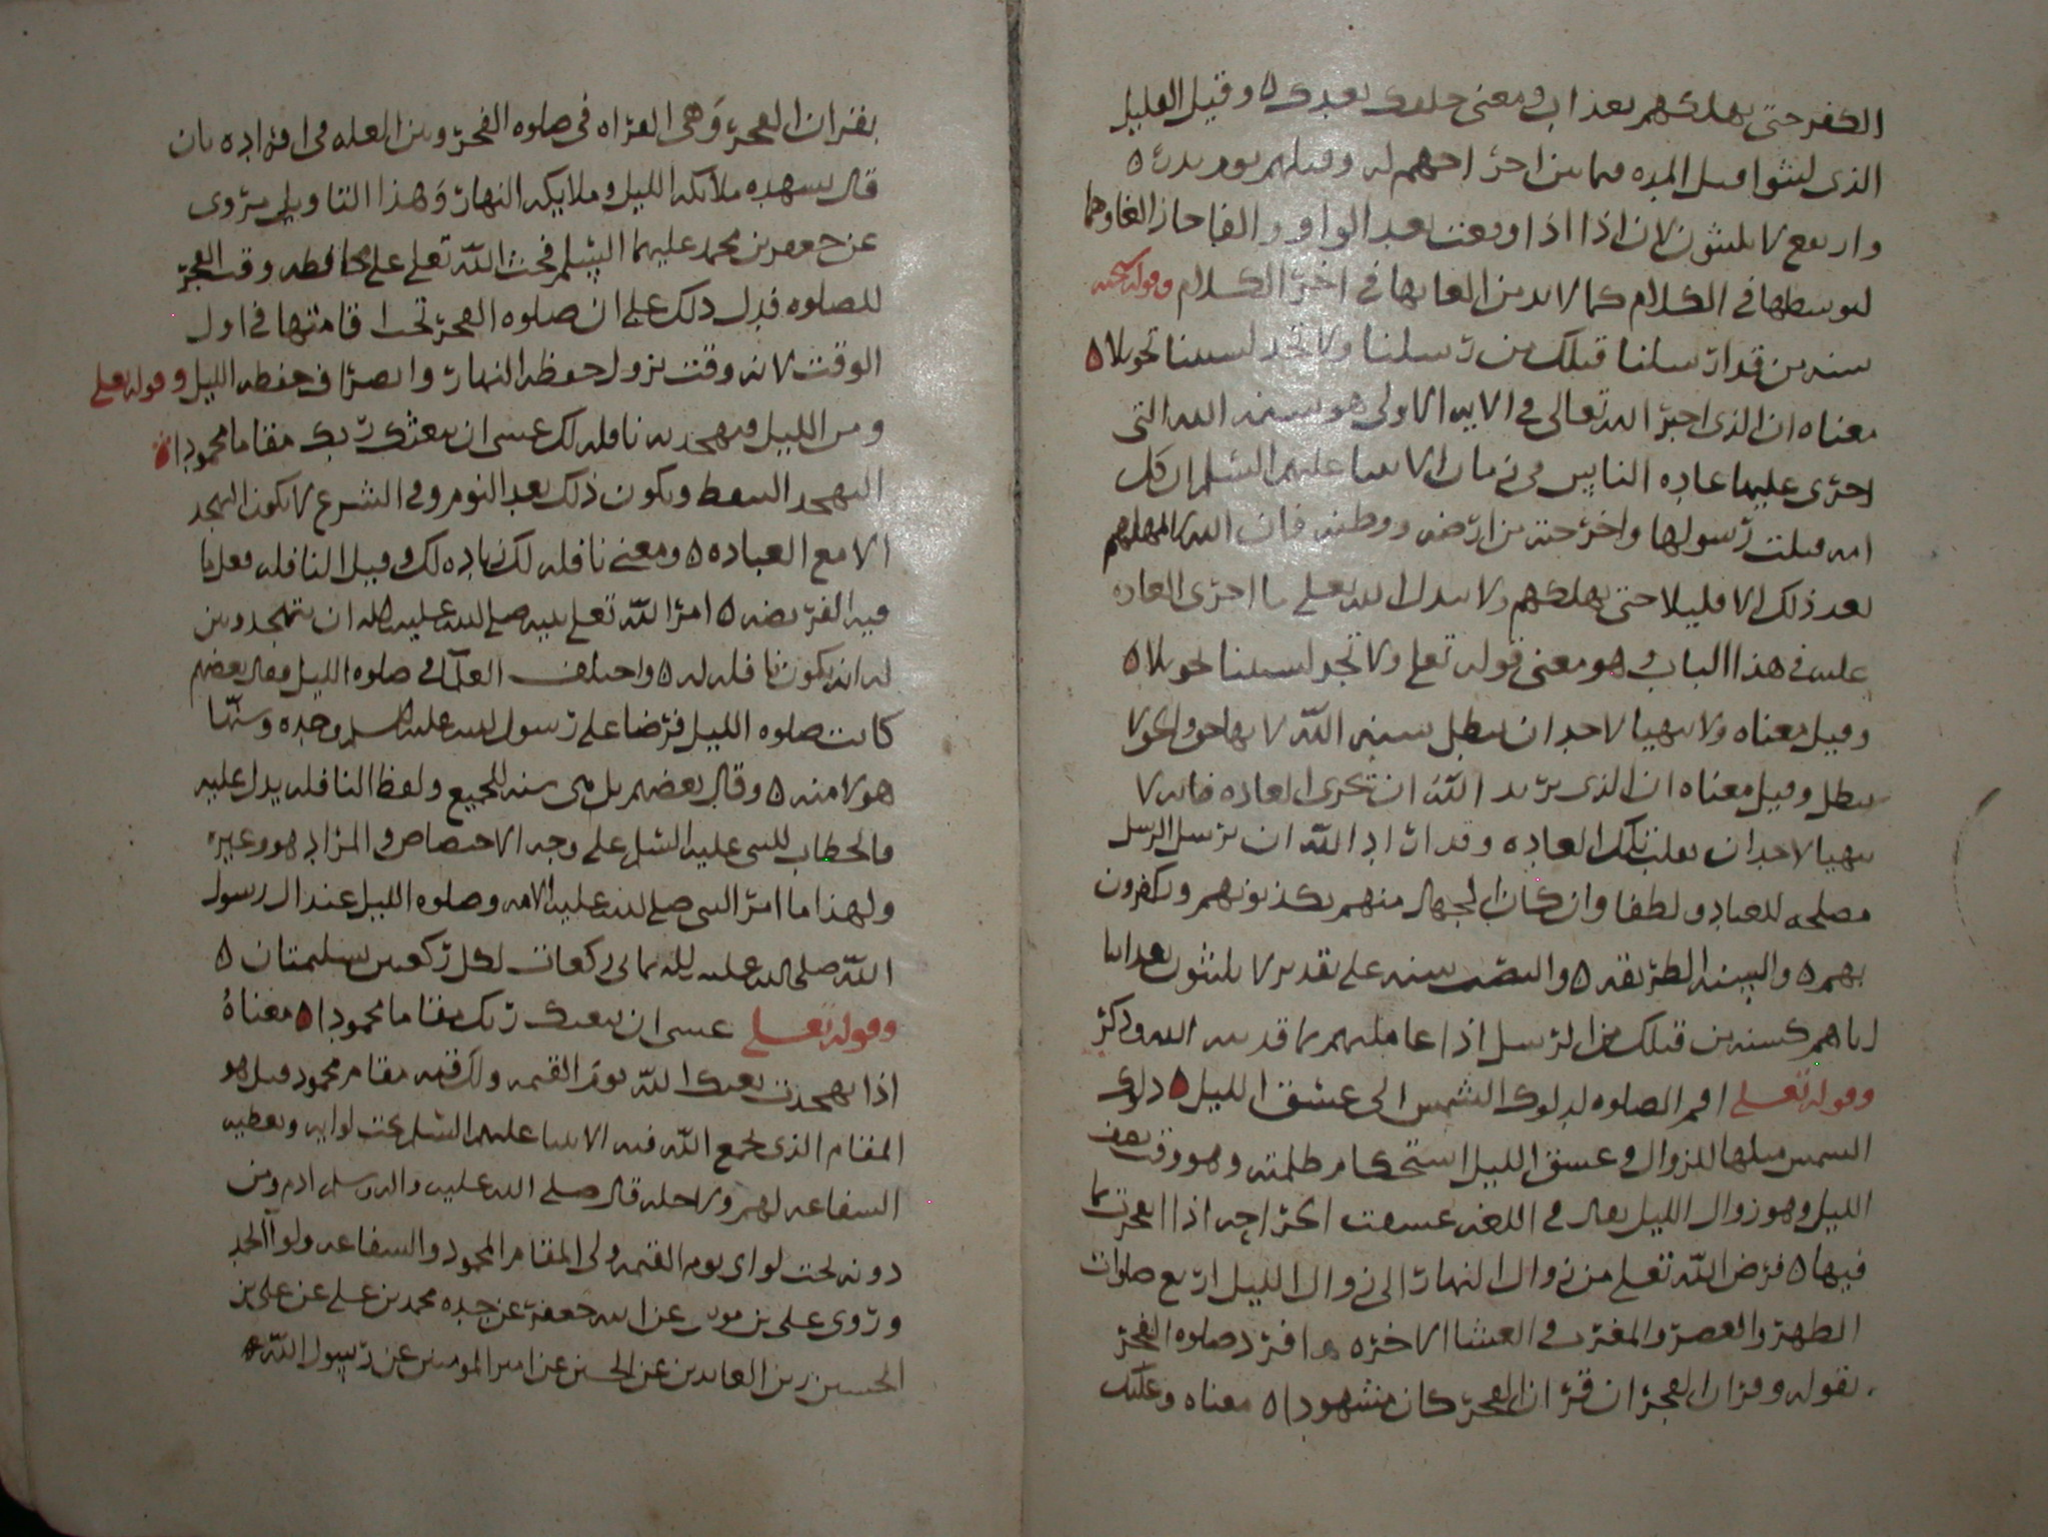 الكفر حتى يهلكهم بعذاب ومعنى خلفك بعدك ٥ وقيل القليل
الذى لبثوا قبل المده فيما بين اخراجهم له وقتلهم يوم بدر ٥
وارتفع لا يلبثون لان اذا اذا وقعت بعد الواو والفا جاز الغاوها
لتوسطها فى الكلام كما لا بد من الغايها فى اخر الكلام وقوله سبحنه
سنه من قد ارسلنا قبلك من رسلنا ولا تجد لسنتنا تحويلا ٥
معناه ان الذى اخبر الله تعالى فى الايه الاولى هو سنه الله التى
اجرى عليها عاده الناس فى زمان الانبيا عليهم السلم ان كل
امه قتلت رسولها واخرجته من ارضه ووطنه فان الله لا يمهلهم
بعد ذلك الا قليلا حتى يهلكهم ولا يبدل الله تعلى ما اجرى العاده
عليه فى هذا الباب وهو معنى قوله تعلى ولا تجد لسنتنا تحويلا ٥
وقيل معناه ولا يتهيا لاحد ان يبطل سنه الله لانها حق والحق لا
يبطل وقيل معناه ان الذى يريد الله ان تجرى العاده فانه لا
يتهيا لاحد ان يقلب تلك العاده وقد اراد الله ان يرسل الرسل
مصلحه للعباد ولطفا وان كان الجهال منهم يكذبونهم ويكفرون
بهم ٥ والسنه الطريقه ٥ وانتصب سنه على تقدير لا يلبثون بعذابنا
اياهم كسنه من قبلك من الرسل اذا عاملهم بما قد بينه الله وذكر
وقوله تعلى اقم الصلوه لدلوك الشمس الى غسق الليل ٥ دلوك
الشمس ميلها للزوال وغسق الليل استحكام ظلمته وهو وقت نصف
الليل وهو زوال الليل يقال فى اللغه غسقت الجراحه اذا انفجرت بما
فيها ٥ فرض الله تعلى من زوال النهار الى زوال الليل اربع صلوات
الظهر والعصر والمغرب والعشا الاخره وافرد صلوه الفجر
بقوله وقران الفجر ان قران الفجر كان مشهودا ٥ معناه وعليك
بقران الفجر وهى القراه فى صلوه الفجر وبين العله فى افراده بان
قال تشهده ملائكه الليل وملايكه النهار وهذا التاويل يروى
عن جعفر بن محمد عليهما السلم فحث الله تعلى على محافظه وقت الفجر
للصلوه فدل ذلك على ان صلوه الفجر تجب اقامتها فى اول
الوقت لانه وقت نزول حفظه النهار وانصراف حفظه الليل وقوله تعلى
ومن الليل فتهجد به نافله لك عسى ان يبعثك ربك مقاما محمودا ٥
التهجد التيقظ ويكون ذلك بعد النوم وفى الشرع لا يكون التهجد
الا مع العباده ٥ ومعنى نافله لك زياده لك وقيل النافله فعل ما
فيه الفريضه ٥ امر الله تعلى نبيه صلى الله عليه وآله ان يتهجد وبين
له انه يكون نافله له ٥ واختلف العلما فى صلوه الليل فقال بعضهم
كانت صلوه الليل فرضا على رسول الله عليه السلم وحده وسنها
هو لامته ٥ وقال بعضهم بل هى سنه للجميع ولفظ النافله يدل عليه
فالخطاب للنبى عليه السلم على وجه الاختصاص والمراد هو وغيره
ولهذا ما امر النبى صلى الله عليه الامه وصلوه الليل عند ال رسول
الله صلى الله عليه وآله ثمانى ركعات لكل ركعتين تسليمتان ٥
وقوله تعلى عسى ان يبعثك ربك مقاما محمودا ٥ معناه
اذا تهجدت بعثك الله يوم القيمه ولك فيه مقام محمود قيل هو
المقام الذى يجمع الله فيه الانبيا عليهم السلم تحت لوايه ويعطيه
الشفاعه لهم ولاجله قال صلى الله عليه وآله وسلم ادم ومن
دونه تحت لواى يوم القيمه ولى المقام المحمود والشفاعه ولوا الحمد
وروى على بن موسى عن ابيه جعفر عن جده محمد بن على عن على بن
الحسين زين العابدين عن الحسين عن امير المومنين عن رسول الله